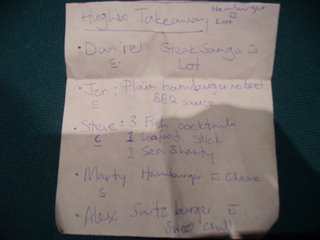 Hughes Takeaway
Hamburger
Lot
• Daniel Steak Sanga
C Lot
• Jen: Plain hamburger no beet
C BBQ sauce
• Steve: 3 Fish cocktails
C 1 Seafood stick
1 Sea Shanty
• Marty Hamburger Cheese
C
• Alex Snitz burger
Sweet Chilli